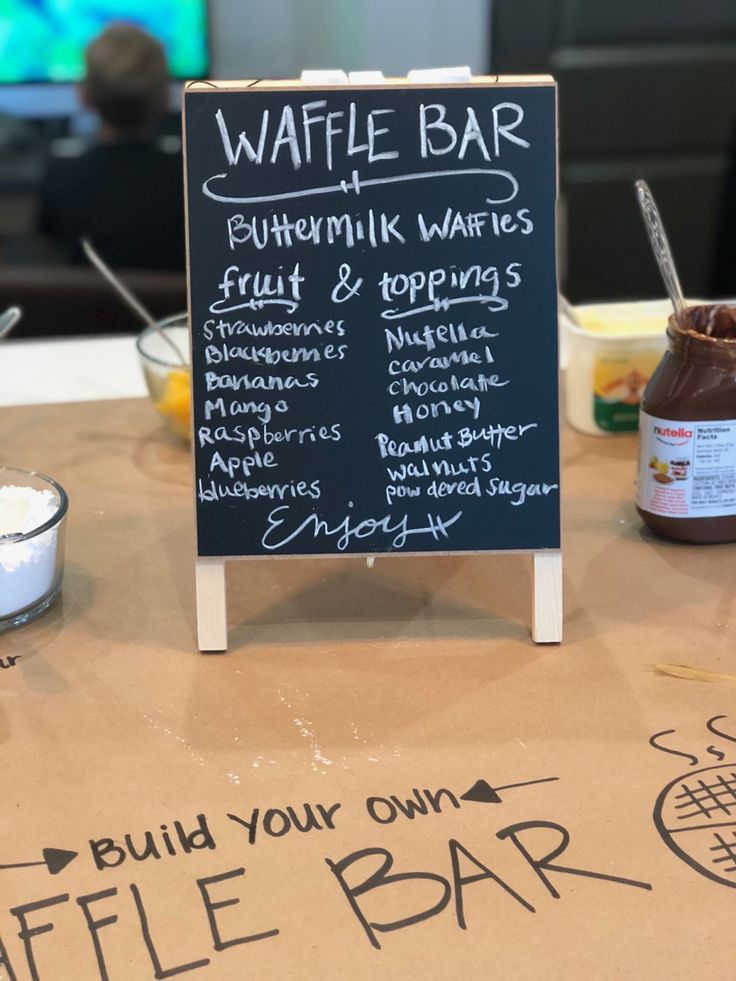 WAFFLE BAR
BUTTERMILK WAFFLES
fruit & toppings
Strawberries
Blackberries
Bananas
Mango
Raspberries
Apple
blueberries
Nutella
caramel
chocolate
Honey
Peanut Butter
walnuts
powdered sugar
Enjoy
nutella
Nutrition
Facts
BUild YOUR OWN
AFFLE BAR